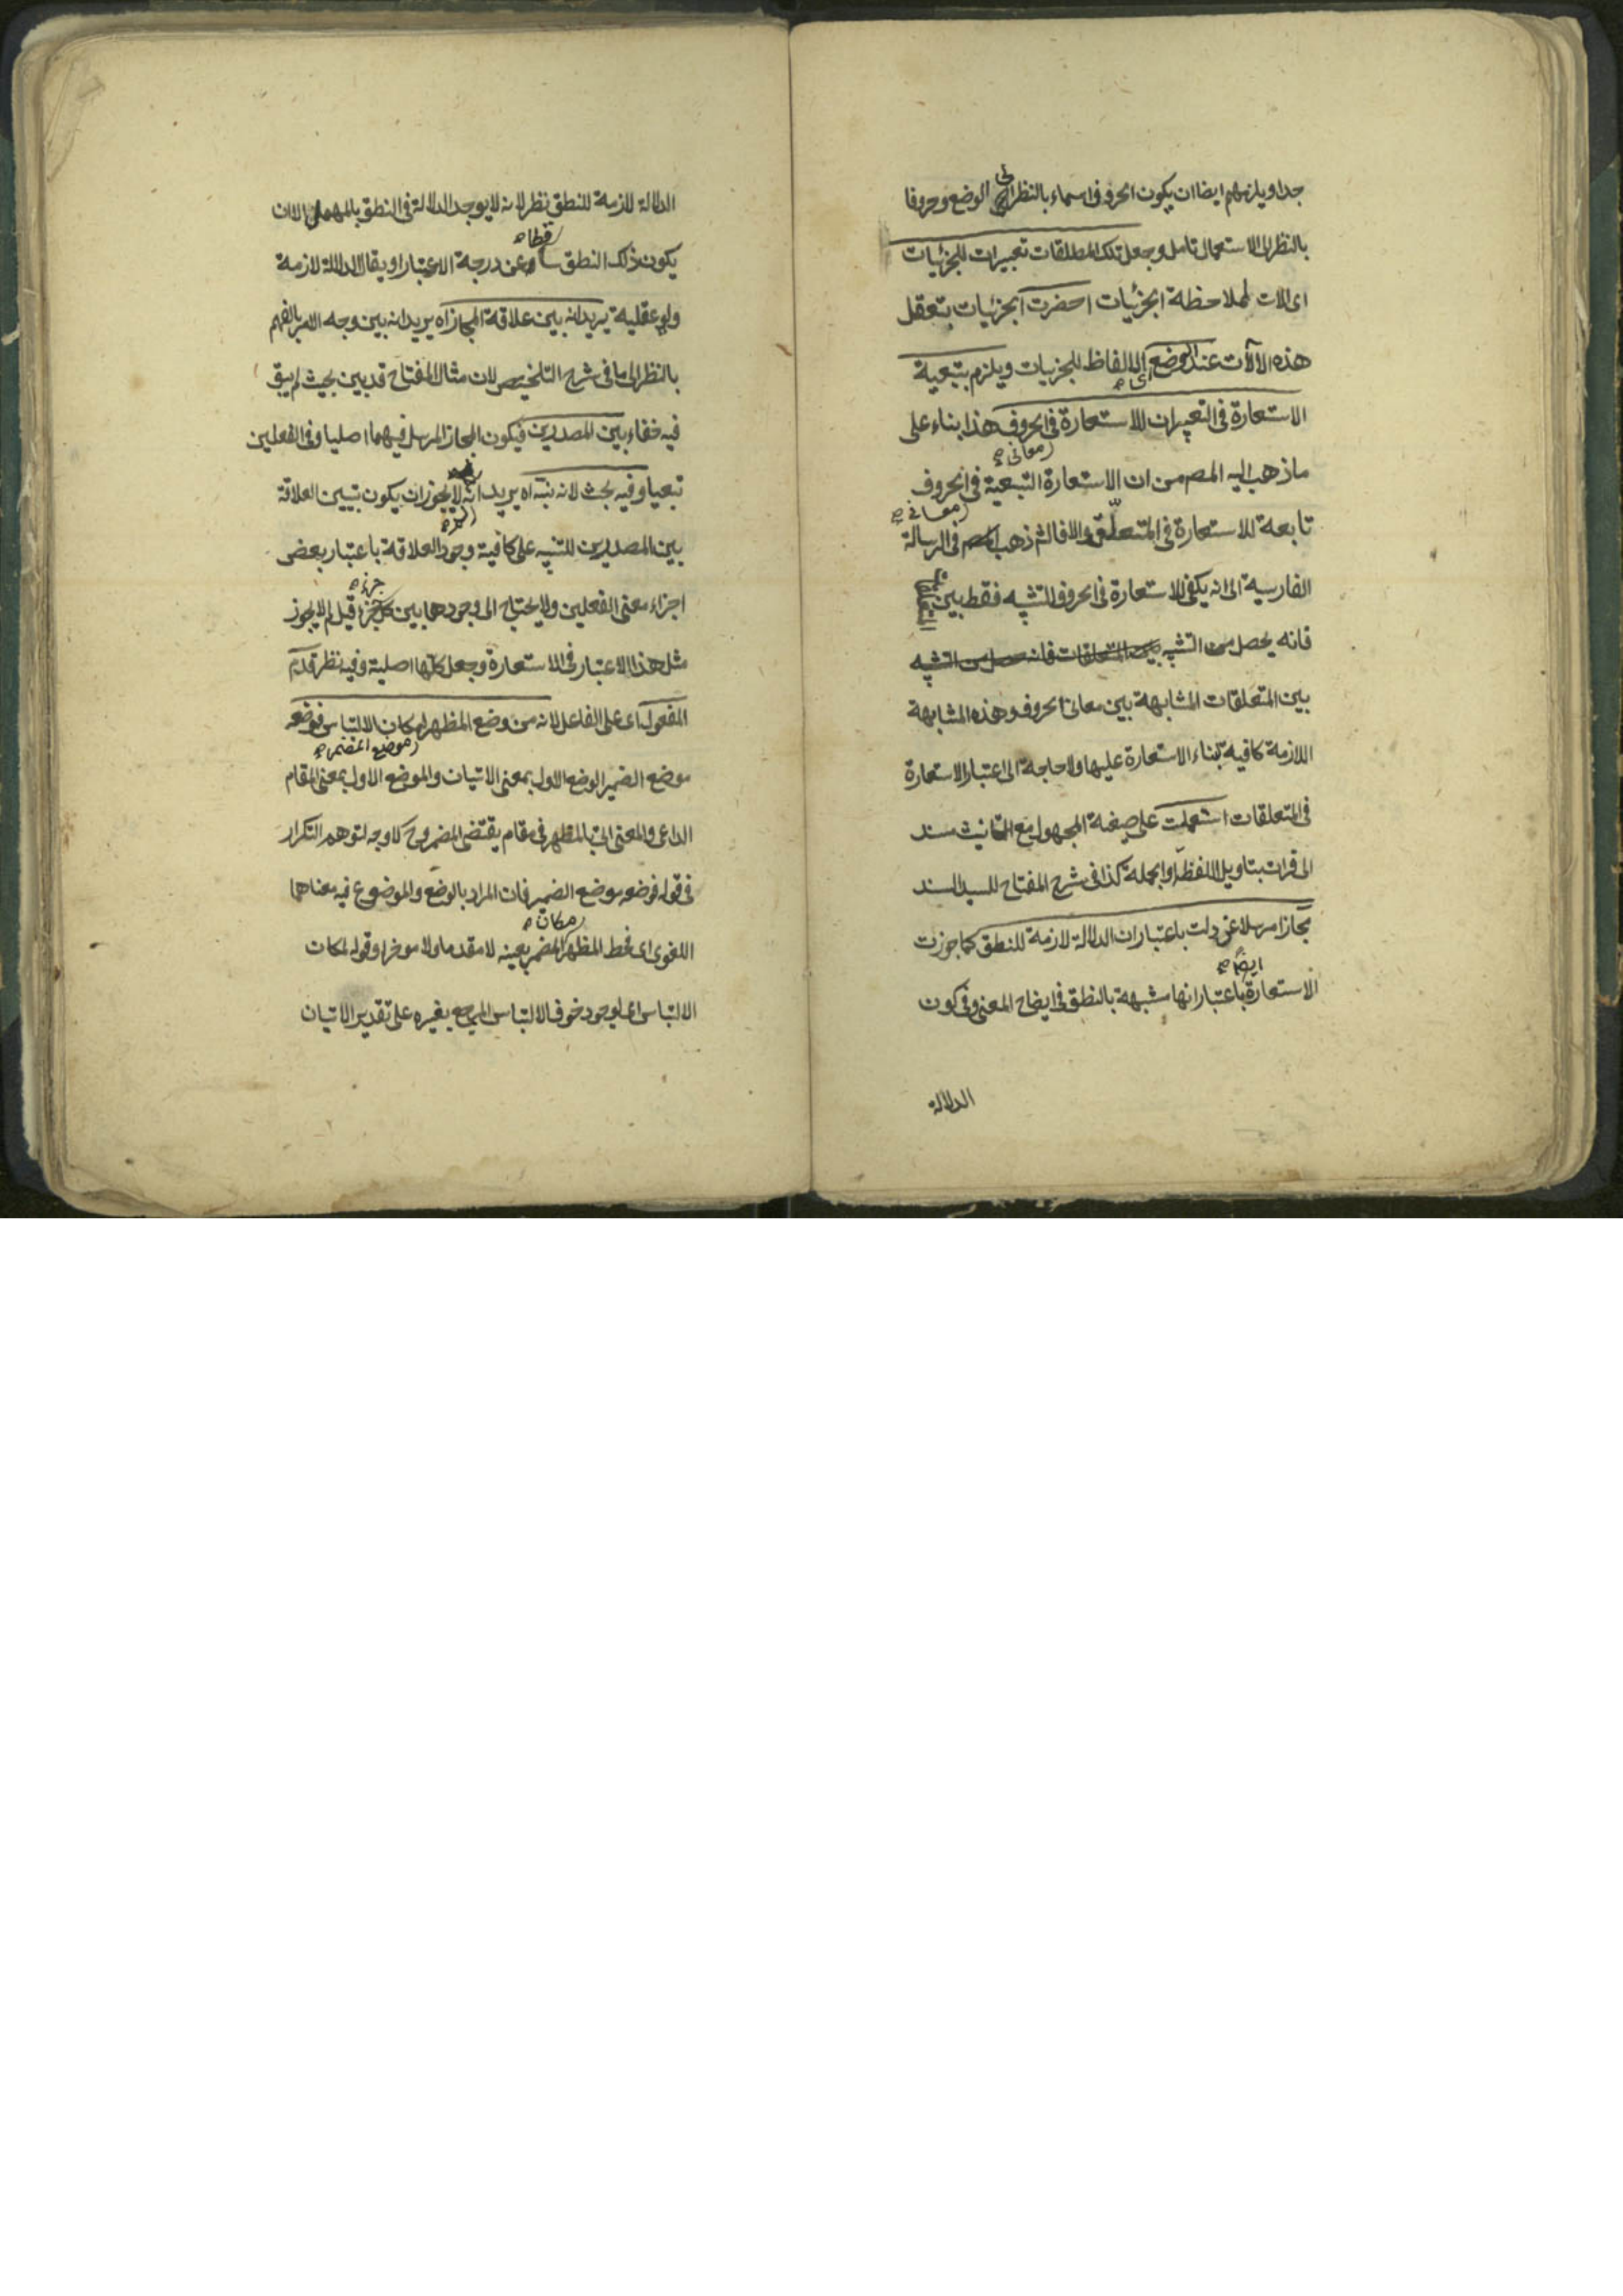 جدا ويلزمهم ايضا ان يكون الحروف اسماء بالنظر الى الوضع وحروفا
بالنظر الى الاستعمال تامل وجعل تلك المطلقات تعبيرات للجزئيات
اى الات لملاحظة الجزئيات احضرت الجزئيات بتعقل
هذه الالات عند الوضع اى الالفاظ للجزئيات ويلزم بتبعية
الاستعارة فى التعبيرات الاستعارة فى الحروف هذا بناء على
ما ذهب اليه المصر من ان الاستعارة التبعية فى معانى الحروف
تابعة للاستعارة فى المتعلق والا فالشم ذهب فى الرسالة
الفارسية الى انه يكفى للاستعارة فى الحروف التشبيه فقط بين
فانه يحصل من التشبيه
بين المتعلقات المشابهة بين معانى الحروف وهذه المشابهة
اللازمة كافية لبناء الاستعارة عليها ولا حاجة الى اعتبار الاستعارة
فى المتعلقات استعملت على صيغة المجهول مع التانيث مسند
الى قرات بتاويل اللفظة او الجملة كذا فى شرح المفتاح للسيد السند
مجازا مرسلا عن دلت باعتبار ان الدلالة لازمة للنطق كما جوزت
الاستعارة ايضا باعتبار انها مشبهة بالنطق فى ايضاح المعنى وفى كون
الدلالة
الدلالة لازمة للنطق نظر لانه لا يوجد الدلالة فى النطق بالمهمل الا ان
يكون ذلك النطق ساقطا عن درجة الاعتبار او يقال الدلالة لازمة
ولو عقلية يريد انه بين علاقة المجاز اه يريد انه بين وجه الامر بالفهم
بالنظر الى ما فى شرح التلخيص لان مثال المفتاح قد بين بحيث لم يبق
فيه خفاء بين المصدرين فيكون المجاز المرسل فيهما اصليا وفى الفعلين
تبعيا وفيه بحث لانه نبه اه يريد انه لا يجوز ان يكون تبيين العلاقة
بين المصدرين للتنبيه على كافية وجود العلاقة باعتبار بعض
اجزاء معنى الفعلين ولا يحتاج الى وجودها بين كل جزء قيل لم لا يجوز
مثل هذا الاعتبار فى الاستعارة وجعل كلها اصلية وفيه نظر قدم
المفعول اى على الفاعل لانه من وضع المظهر لمكان الالتباس فوضعه
موضع الضمير الوضع الاول بمعنى الاتيان والموضع الاول بمعنى المقام
الداعى والمعنى اتى بالمظهر فى مقام يقتضى المضمر وح لا وجه لتوهم التكرار
فى قوله فوضعه موضع الضمير فان المراد بالوضع والموضوع فيه معناهما
اللغوى اى فحط المظهر مكان المضمر بعينه لا مقدما ولا موخرا وقوله لمكان
الالتباس اى لوجود خوف الالتباس المرجع بغيره على تقدير الاتيان